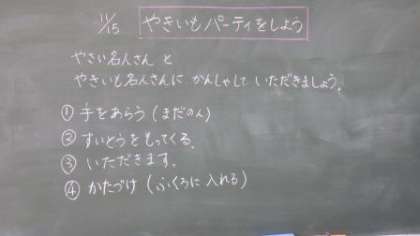 11/15 やきいもパーティをしよう
やさい名人さん と
やきいも名人さんに かんしゃして いただきましょう。
① 手をあらう (まだのん)
② すいとうをもってくる。
③ いただきます。
④ かたづけ (ふくろに 入れる)